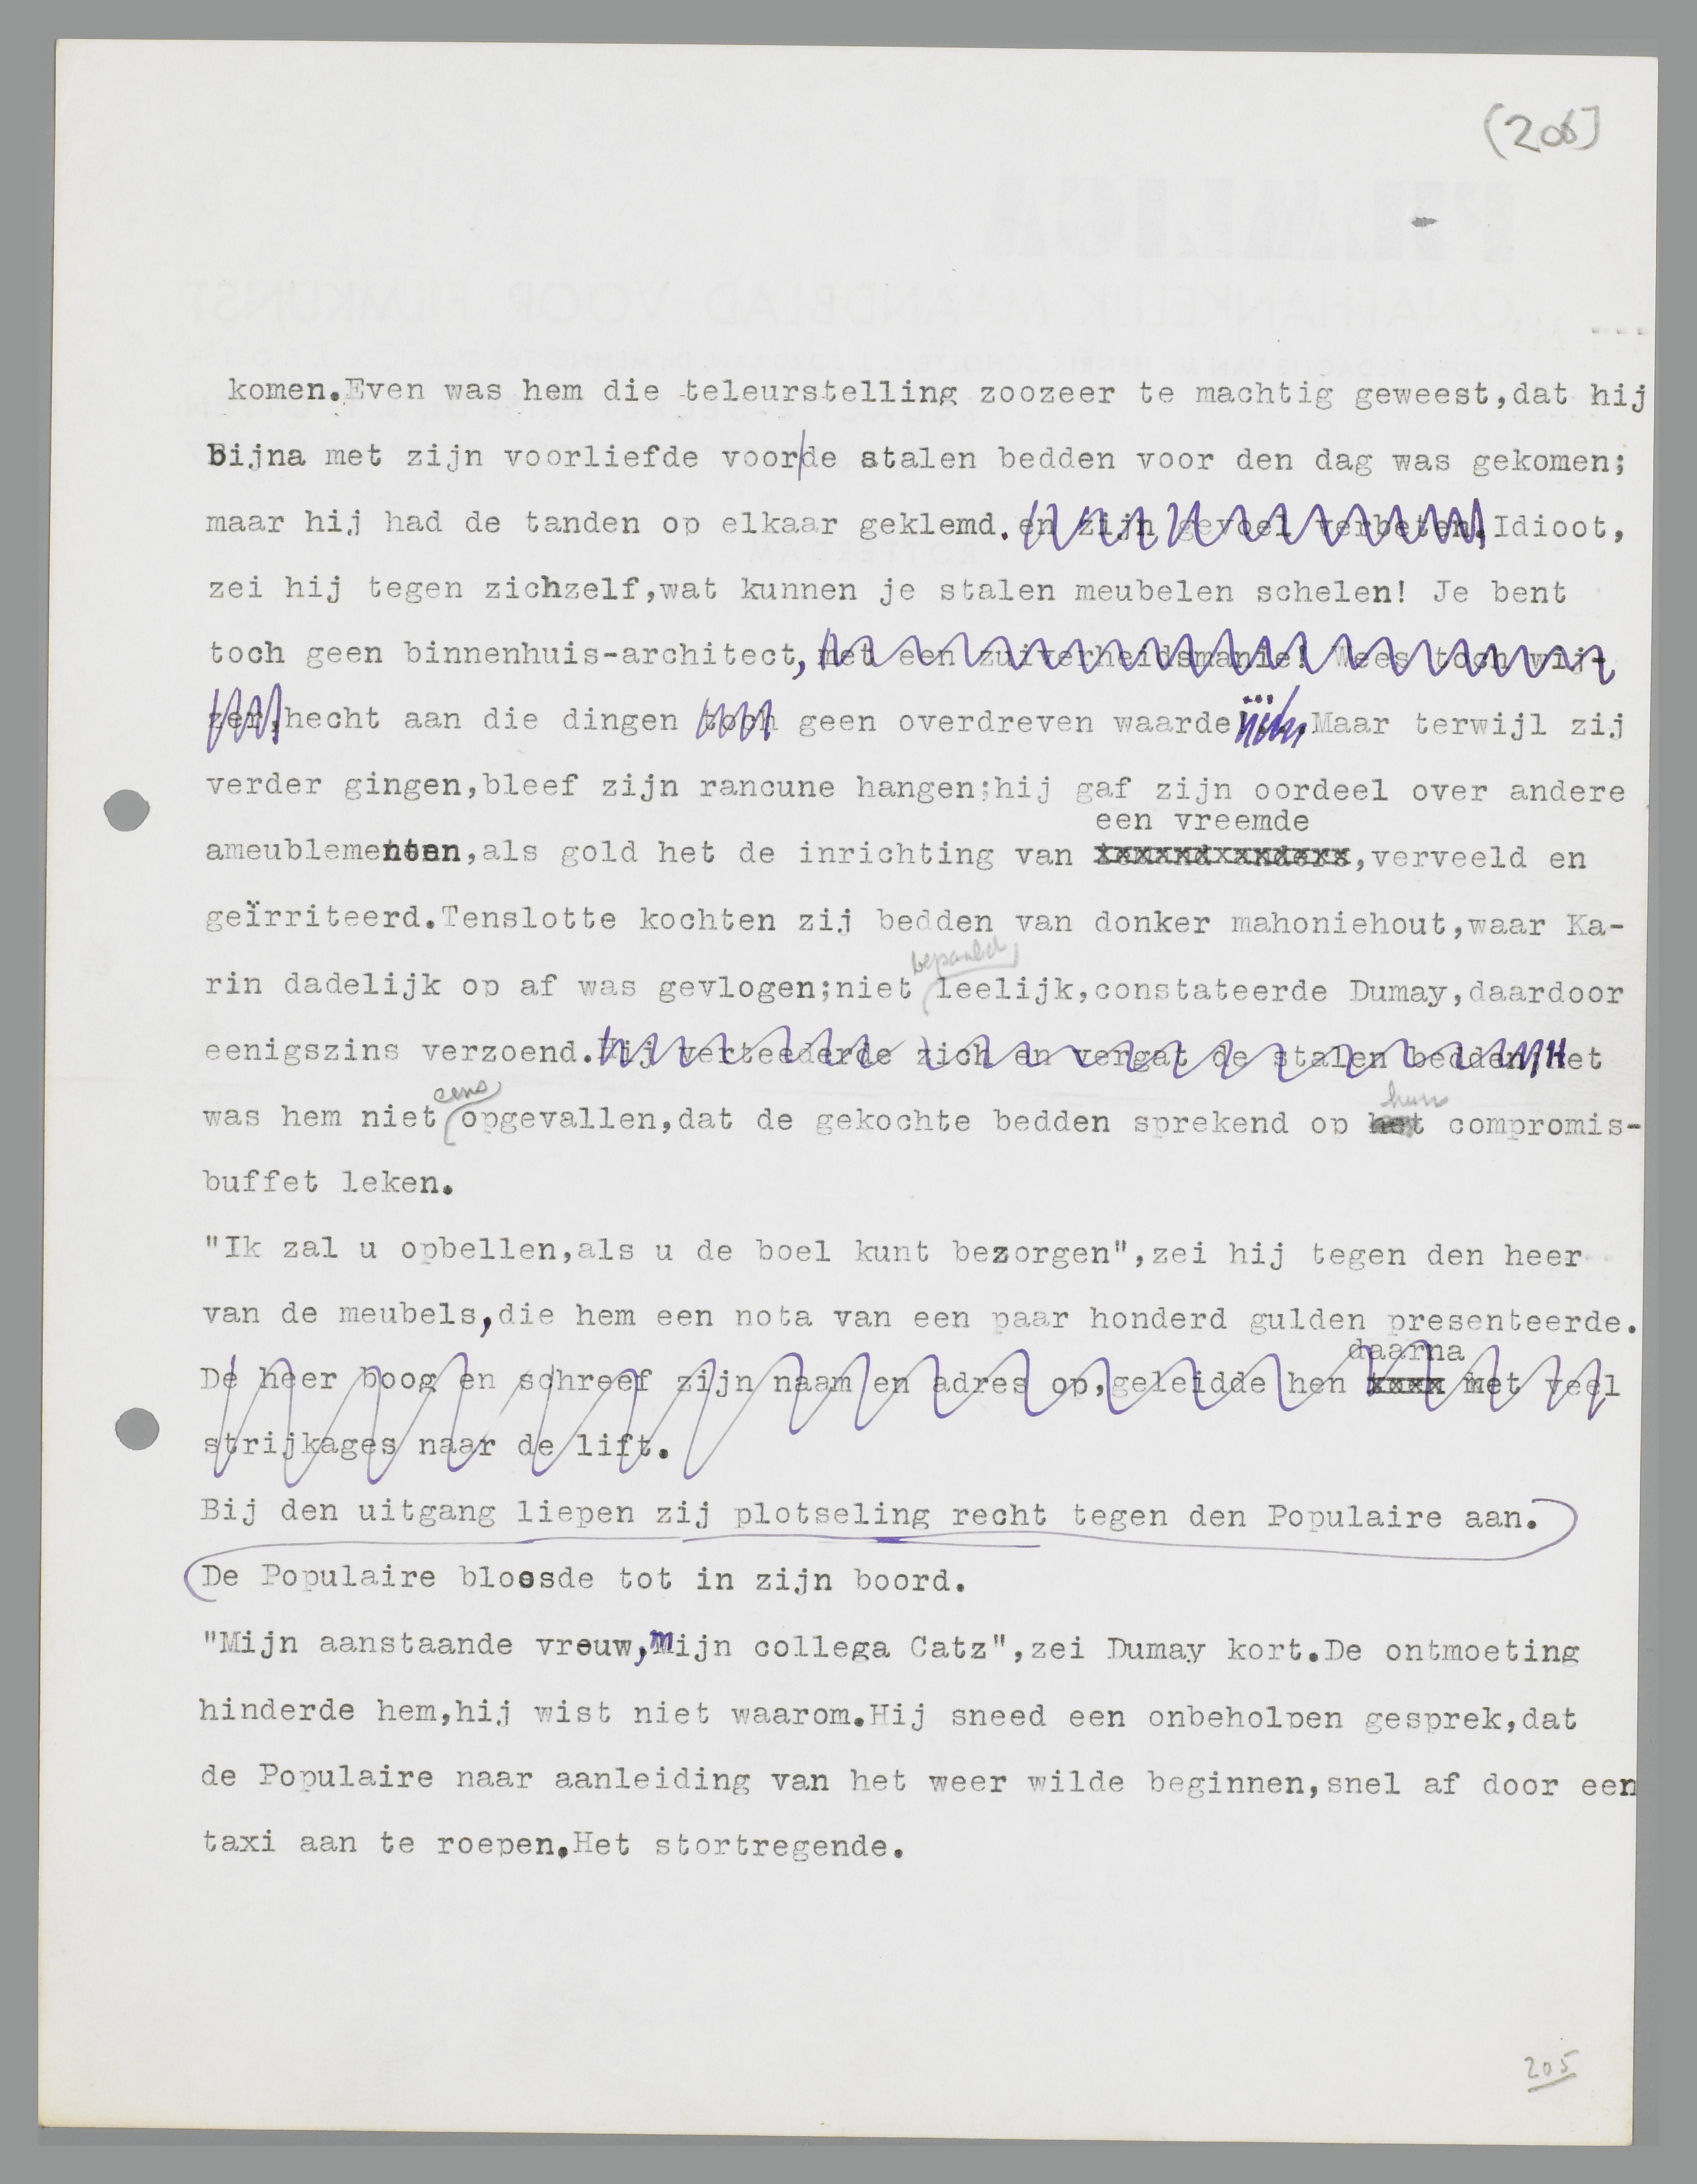 (206)
komen.Even was hem die teleurstelling zoozeer te machtig geweest,dat hij
Bijna met zijn voorliefde voor/de stalen bedden voor den dag was gekomen;
maar hij had de tanden op elkaar geklemd.en zijn gevoel verbeten.Idioot,
zei hij tegen zichzelf,wat kunnen je stalen meubelen schelen! Je bent
toch geen binnenhuis-architect,met een zuiverheidsmanie! Wees toch wij-
zer,hecht aan die dingen toch geen overdreven waarde...Maar terwijl zij
verder gingen,bleef zijn rancune hangen;hij gaf zijn oordeel over andere
een vreemde
ameublementen,als gold het de inrichting van iemand anders,verveeld en
geïrriteerd.Tenslotte kochten zij bedden van donker mahoniehout,waar Ka-
bepaald
rin dadelijk op af was gevlogen;niet leelijk,constateerde Dumay,daardoor
eenigszins verzoend.Hij verteederde zich en vergat de stalen bedden;Het
eens hun
was hem niet opgevallen,dat de gekochte bedden sprekend op het compromis-
buffet leken.
"Ik zal u opbellen,als u de boel kunt bezorgen",zei hij tegen den heer
van de meubels,die hem een nota van een paar honderd gulden presenteerde.
daarna
De heer boog en schreef zijn naam en adres op,geleidde hen met veel
strijkages naar de lift.
Bij den uitgang liepen zij plotseling recht tegen den Populaire aan.
De Populaire bloosde tot in zijn boord.
"Mijn aanstaande vrouw,mijn collega Catz",zei Dumay kort.De ontmoeting
hinderde hem,hij wist niet waarom.Hij sneed een onbeholpen gesprek,dat
de Populaire naar aanleiding van het weer wilde beginnen,snel af door een
taxi aan te roepen.Het stortregende.
205